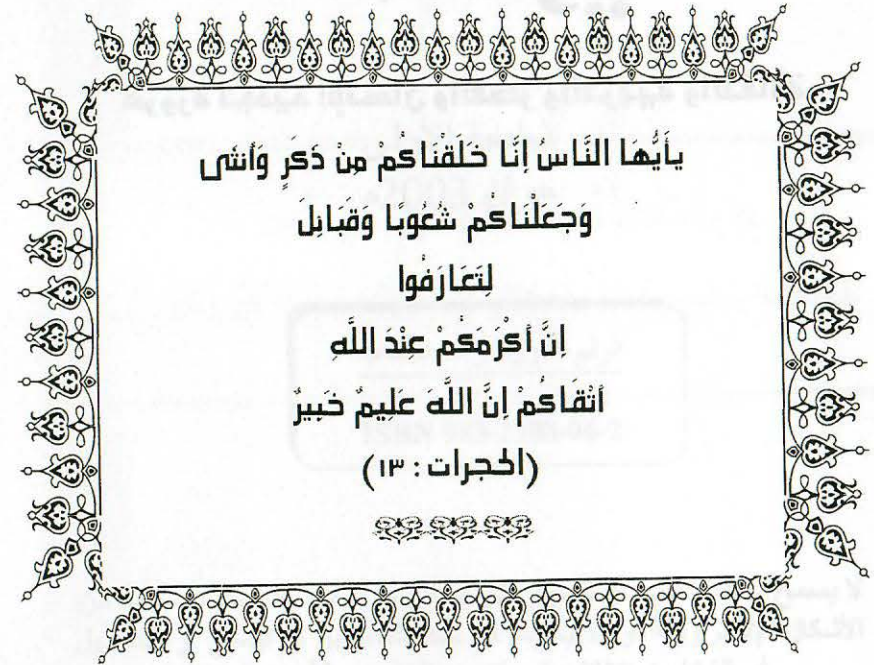 يأَيُّهَا النَّاسُ إِنَّا خَلَقْنَاكُمْ مِنْ ذَكَرٍ وَأُنثى
وَجَعَلْنَاكُمْ شُعُوبًا وَقَبَائِلَ
لِتَعَارَفُوا
إِنَّ أَكْرَمَكُمْ عِنْدَ اللَّهِ
أَتْقَاكُمْ إِنَّ اللَّهَ عَلِيمٌ خَبِيرٌ
(الحجرات : ١٣)